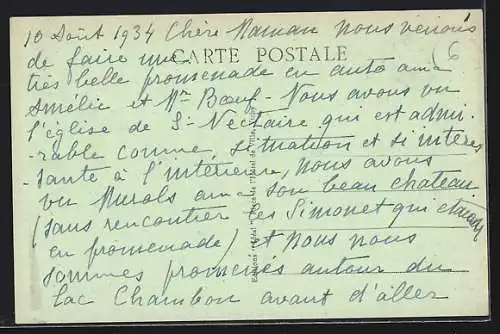 10 Août 1934 Chère Maman nous venons
de faire une
CARTE POSTALE
très belle promenade en auto avec
Amélie et Mr Bœuf - Nous avons vu
l'église de St-Nectaire qui est admi-
-rable comme situation et si intéres
-sante à l'intérieure, nous avons
vu Murols avec son beau chateau
(sans rencontrer les Simonet qui étaient
en promenade) et nous nous
sommes promenés autour du
Lac Chambon avant d'aller